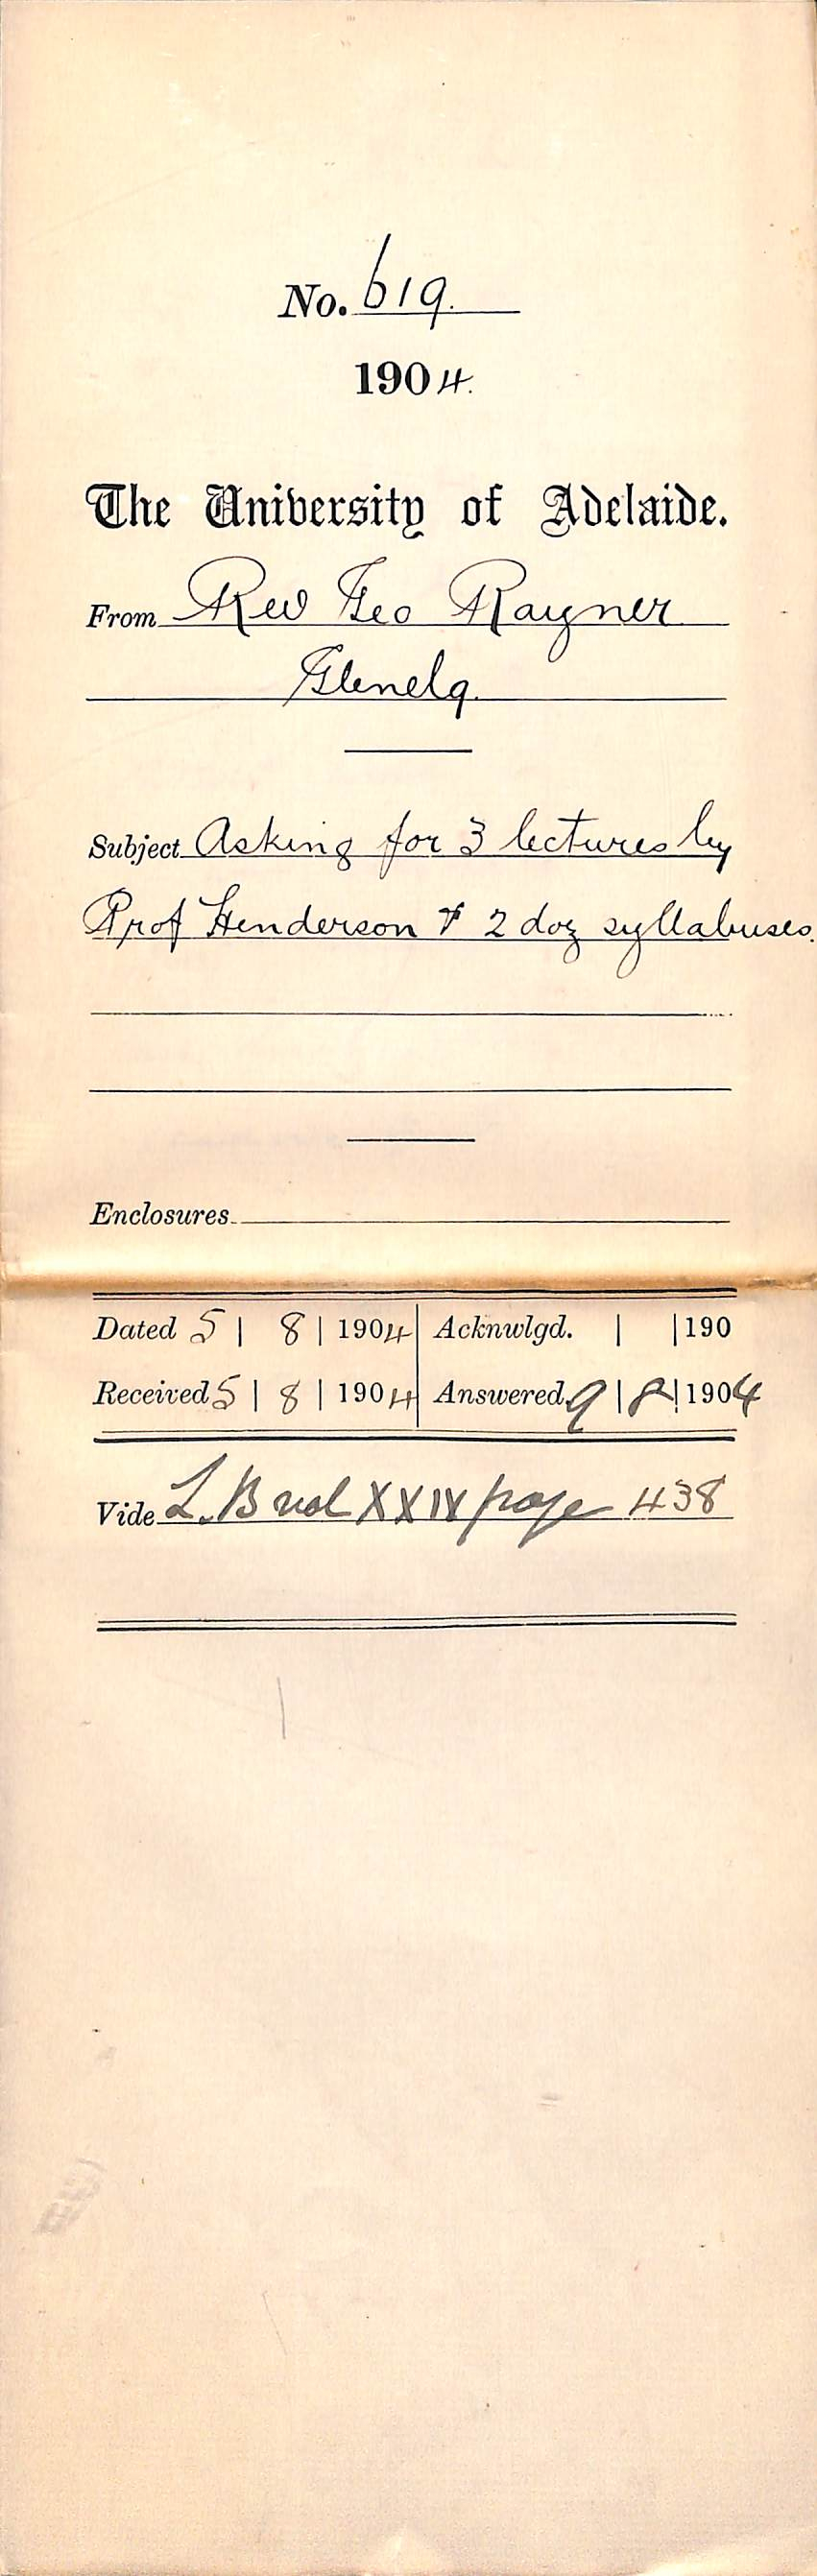 No. 619.
1904.
The University of Adelaide.
From Rev Geo Rayner
Glenelg.
Subject Asking for 3 lectures by
Prof Henderson & 2 doz syllabuses.
Enclosures
Dated 5 | 8 | 1904 | Acknwlgd. | | 190
Received 5 | 8 | 1904 | Answered 9 | 8 | 1904
Vide L.B vol XXIX page 438